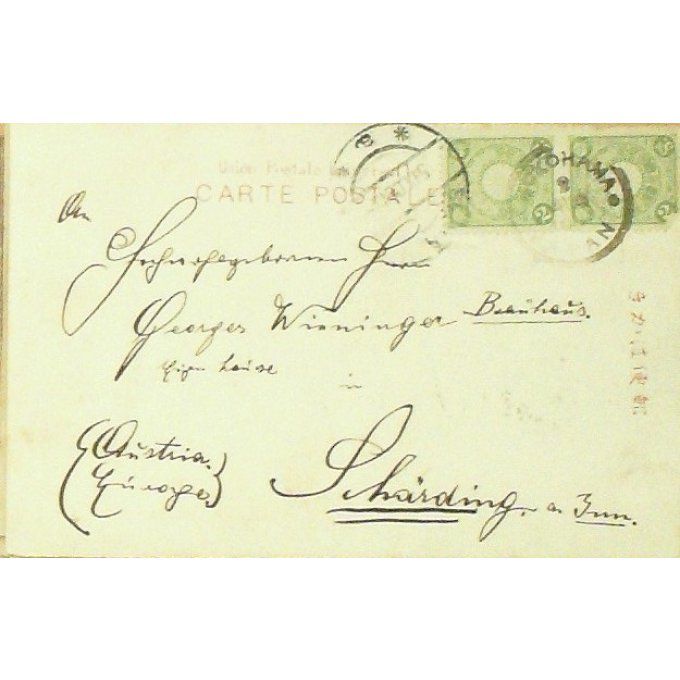 Union Postale Universelle
CARTE POSTALE
YOKOHAMA
An
Hochwohlgeboren Herrn
Georges Wieninger Brauhaus.
in
(Austria.
Europe)
Schärding, a. Inn.